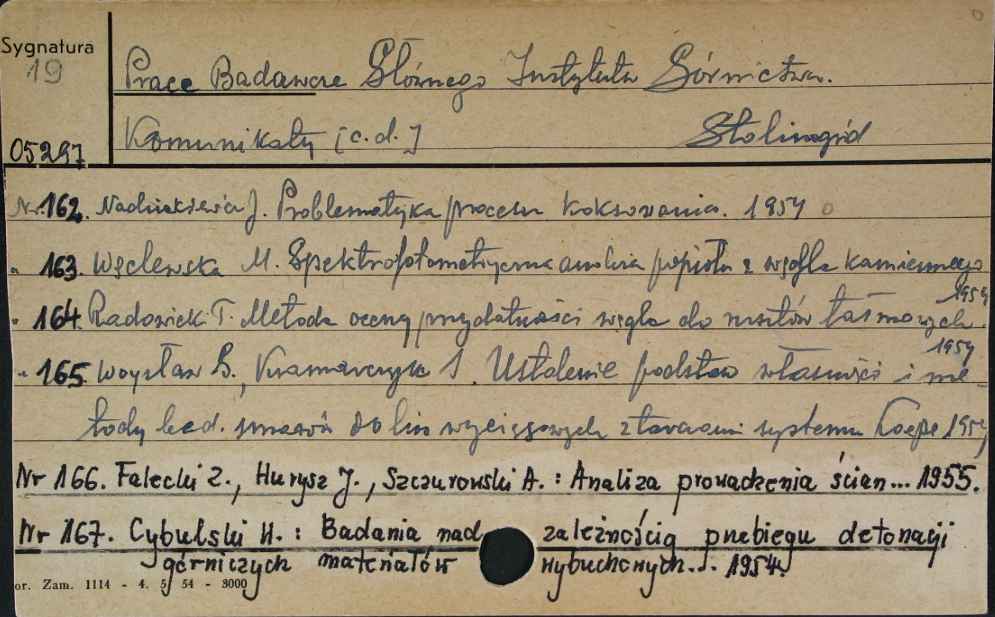 Sygnatura
19
Prace Badawcze Głównego Instytutu Górnictwa.
Komunikaty [c.d.] Stalinogród
05297
Nr. 162. Nadziakiewicz J. Problematyka procesu koksowania. 1954
" 163. Węclewska M. Spektrofotometryczna analiza popiołu z węgla kamiennego
1954
" 164. Radowicki T. Metoda oceny przydatności węgla do rusztów taśmowych.
1954
" 165. Woysław B., Kramarczyk S. Ustalenie podstaw własności i me-
tody bad. smarów do lin wyciągowych z tarczami systemu Koepe 1954
Nr 166. Falecki Z., Hurysz J., Szczurowski A. : Analiza prowadzenia ścian... 1955.
Nr 167. Cybulski H. : Badania nad zależnością przebiegu detonacji
górniczych materiałów wybuchowych... 1954.
or. Zam. 1114 - 4. 5/ 54 - 3000